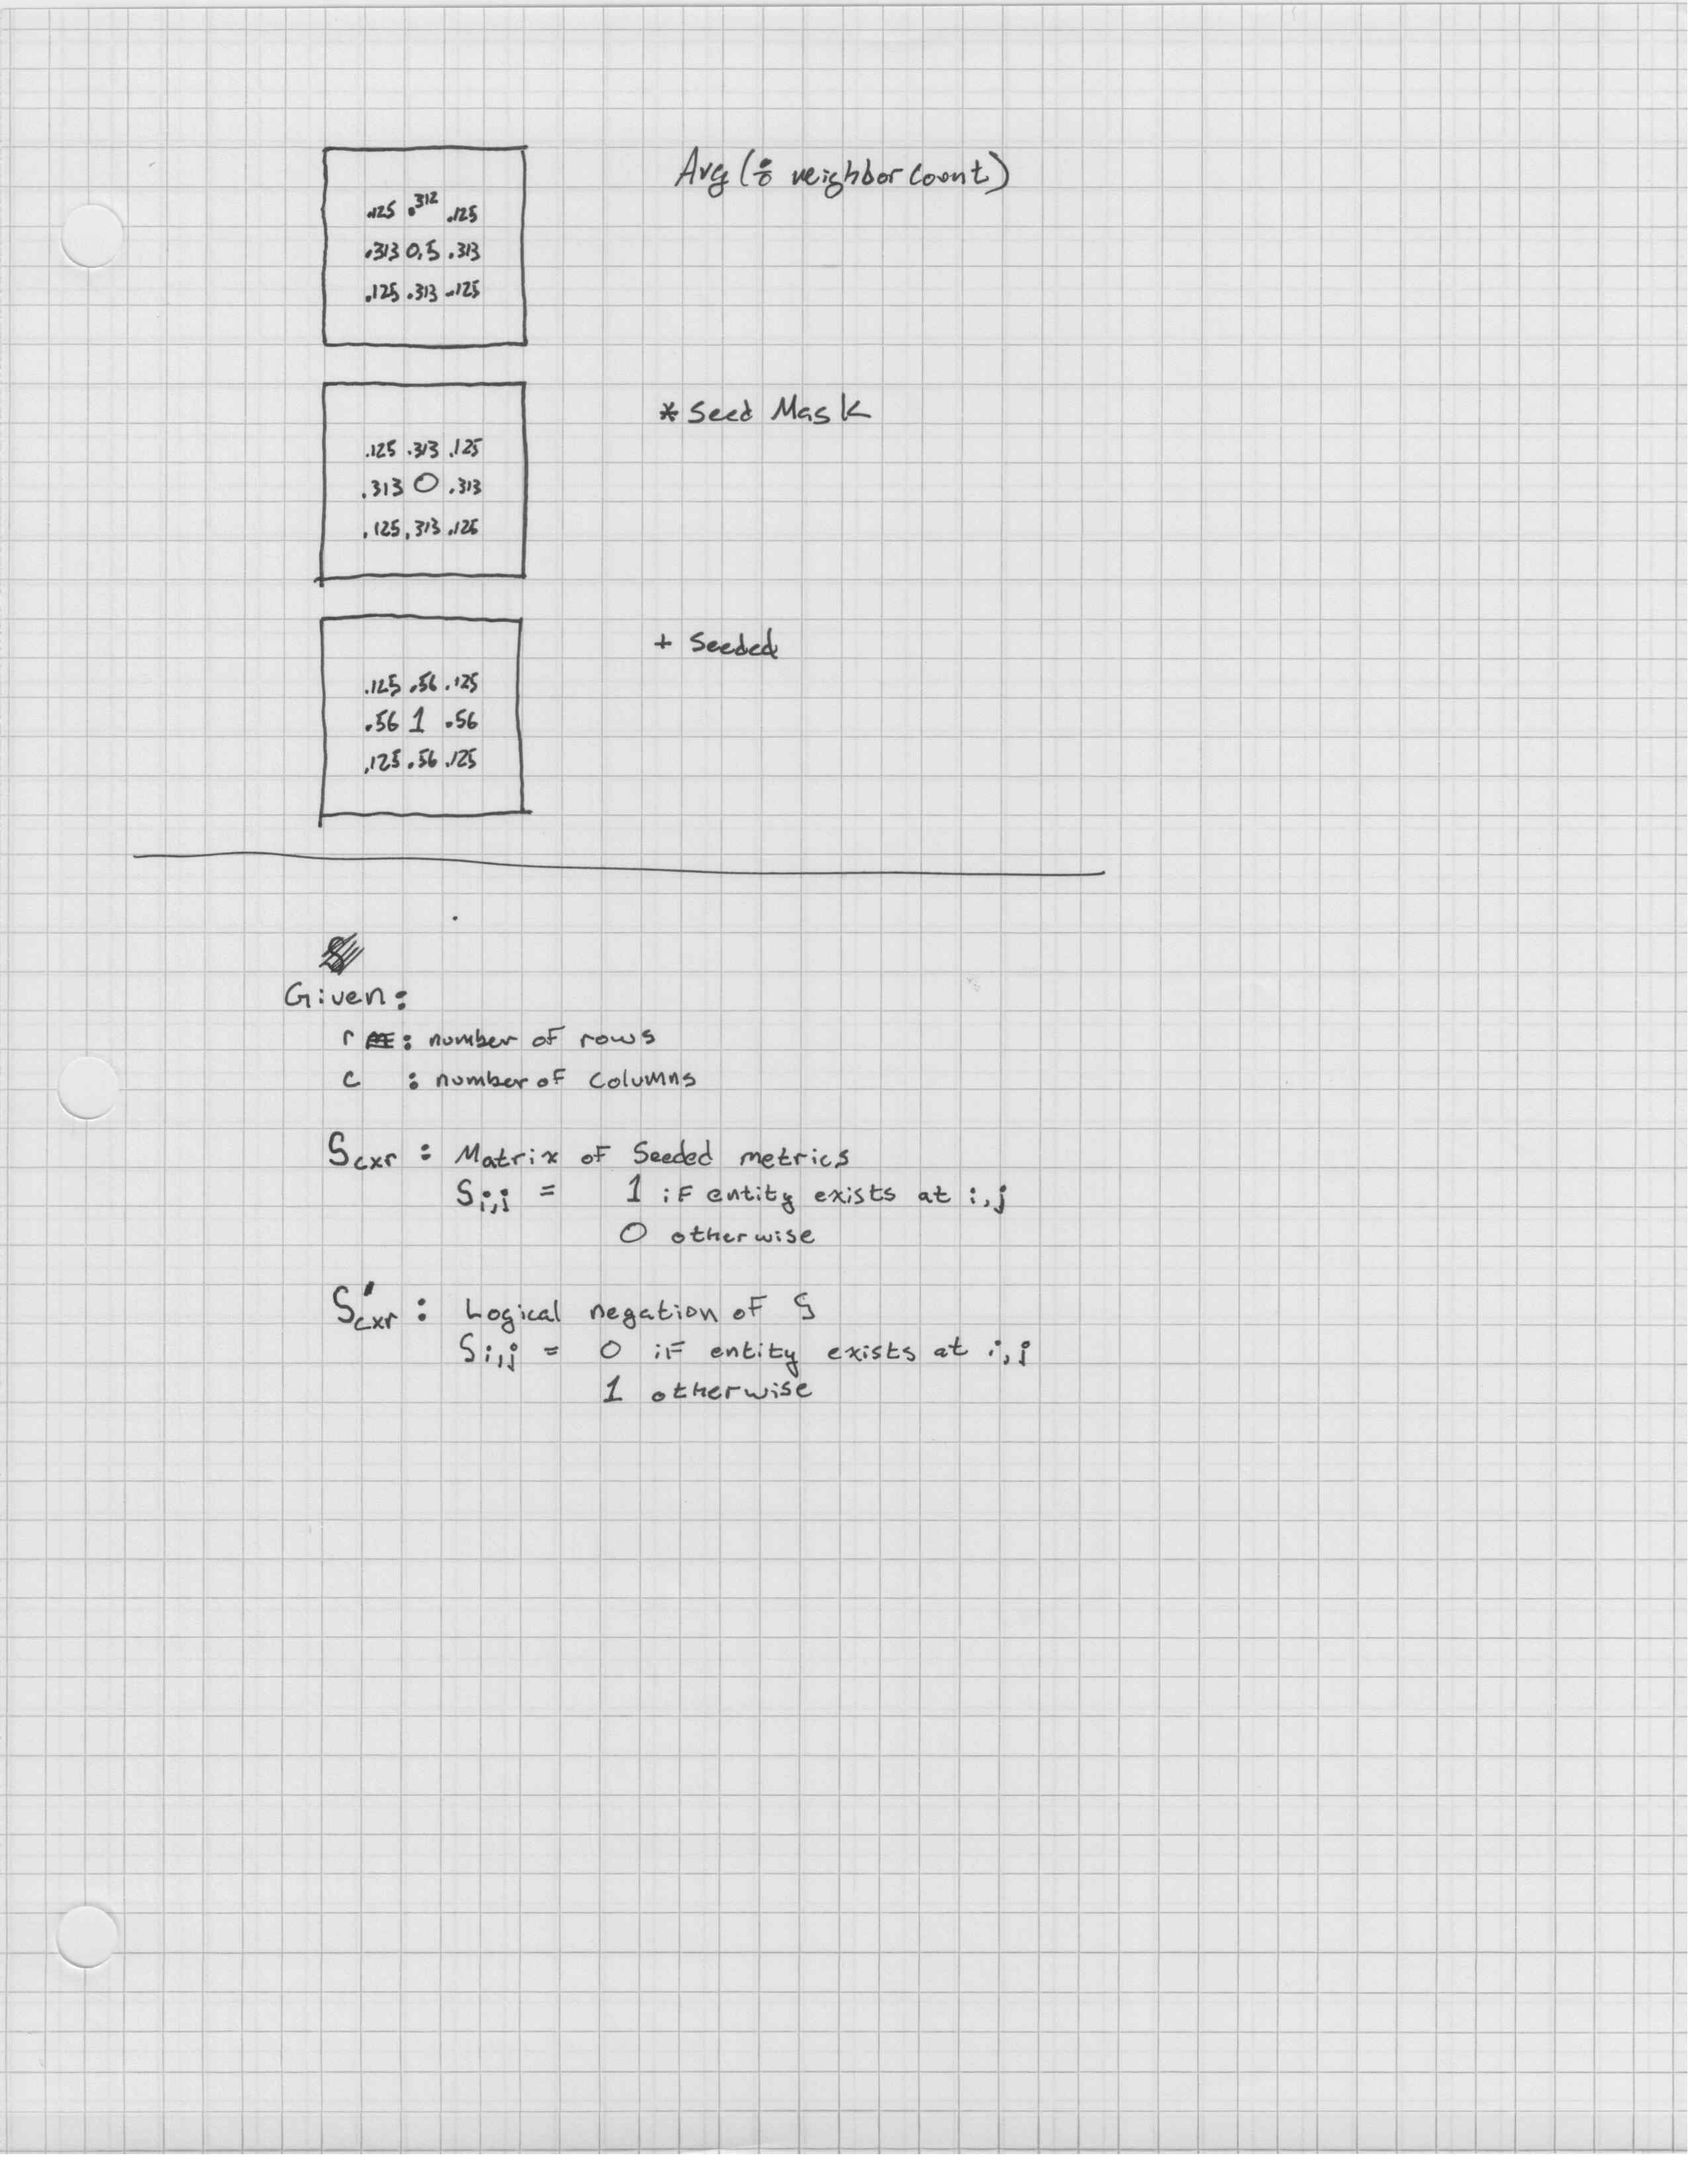 Avg (÷ neighbor count)
.125 .312 .125
.313 0.5 .313
.125 .313 .125
* Seed Mask
.125 .313 .125
.313 0 .313
.125 .313 .125
+ Seeded
.125 .56 .125
.56 1 .56
.125 .56 .125
Given:
r : number of rows
c : number of columns
Scxr : Matrix of Seeded metrics
Si,j = 1 if entity exists at i,j
0 otherwise
S'cxr : Logical negation of S
Si,j = 0 if entity exists at i,j
1 otherwise